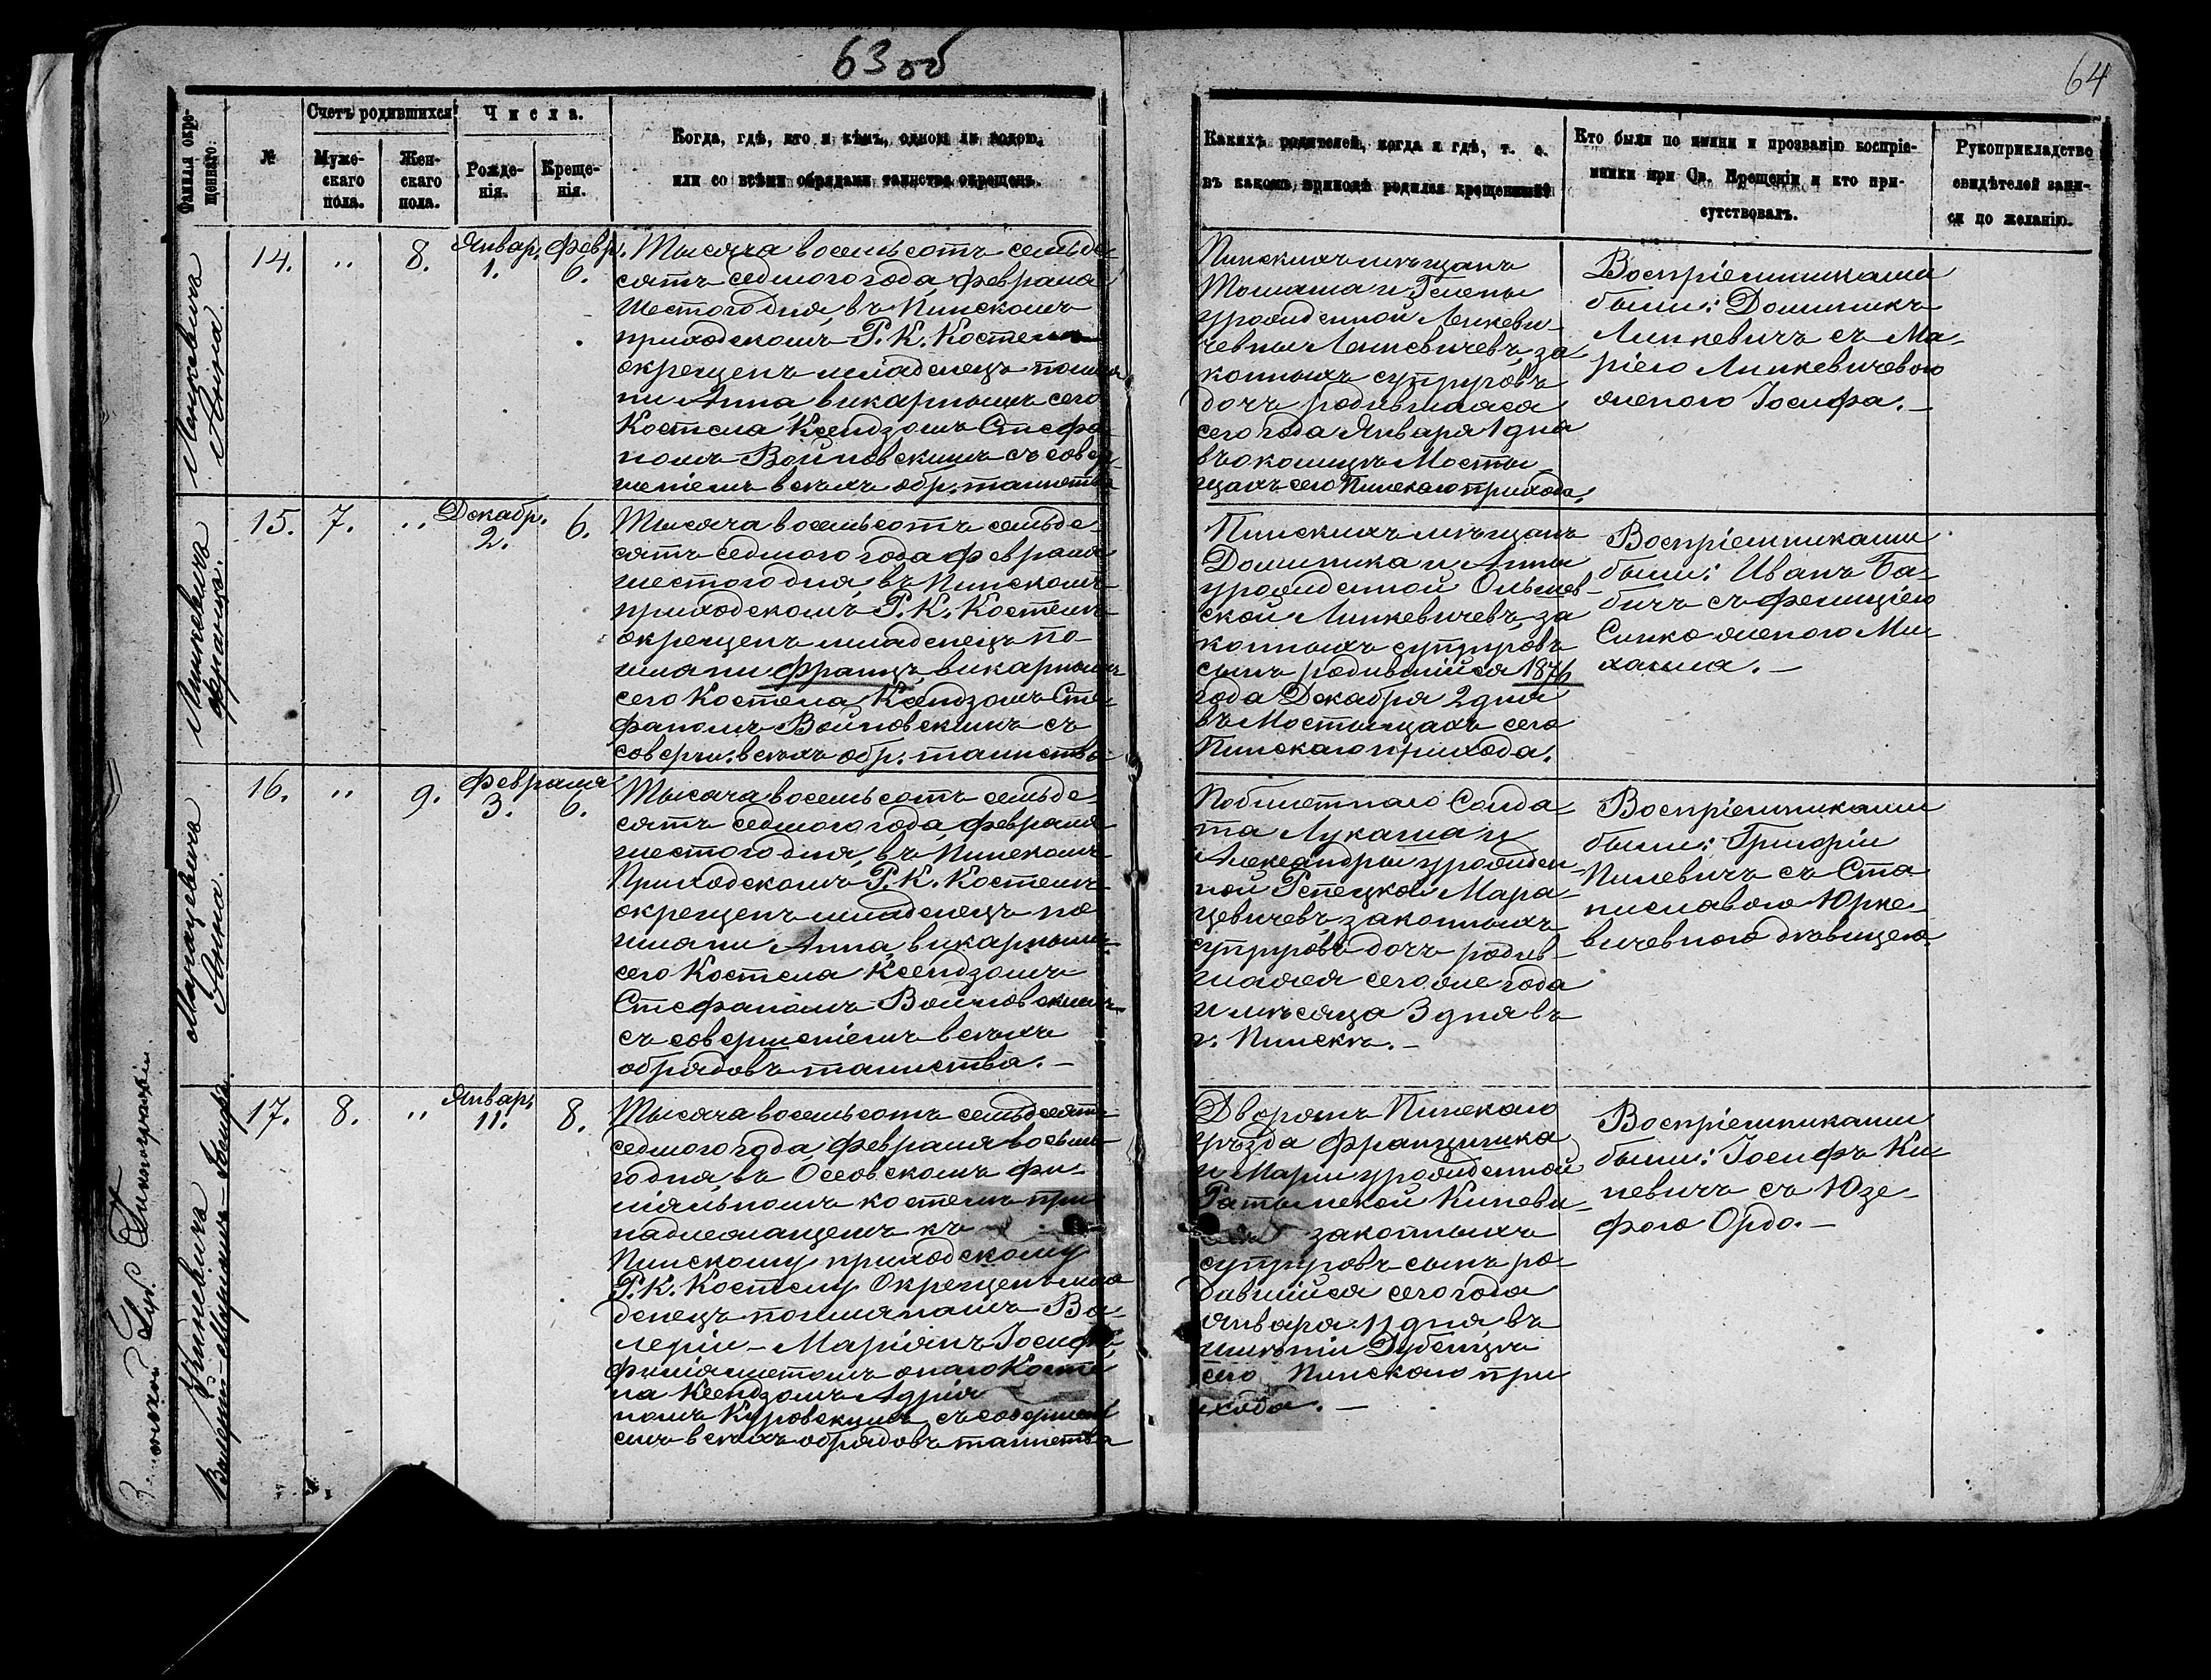 63 об
64
Фамилія окре-
щеннаго.
№
Счетъ родившихся
Муже-
скаго
пола.
Жен-
скаго
пола.
Числа.
Рожде-
нія.
Креще-
нія.
Когда, гдѣ, кто и кѣмъ, одною ли водою,
или со всѣми обрядами таинства окрещенъ.
Какихъ родителей, когда и гдѣ, т. е.
въ какомъ приходѣ родился крещенный
Кто были по имени и прозванію воспріе-
мники при Св. Крещеніи и кто при-
сутствовалъ.
Рукоприкладство
свидѣтелей запи-
си по желанію.
Анна
14.
"
8.
Январ.
1.
Февр.
6.
Тысяча восемьсотъ семьде-
сятъ седмого года Февраля
шестого дня, въ Пинскомъ
приходскомъ Р. К. Костелѣ
окрещенъ младенецъ по име-
ни Анна викарнымъ сего
Костела Ксендзомъ Стефа-
номъ Войновскимъ съ совер-
шеніемъ всѣхъ обр. таинства
Пинскихъ мѣщанъ
Томаша и Гелены
урожденной Ленкеви-
чевны Ленкевичевъ, за-
конныхъ супруговъ
дочь родившаяся
сего года Января 1 дня
въ околицѣ Мосты-
щахъ сего Пинскаго прихода.
Воспріемниками
были: Доминикъ
Линкевичъ съ Ма-
ріею Линкевичевою
женою Іосифа. —
Линкевичъ
Францъ.
15.
7.
"
Декабр.
2.
6.
Тысяча восемьсотъ семьде-
сятъ седмого года Февраля
шестого дня, въ Пинскомъ
приходскомъ Р. К. Костелѣ
окрещенъ младенецъ по
имени Францъ викарнымъ
сего Костела Ксендзомъ Сте-
фаномъ Войновскимъ съ
соверш. всѣхъ обр. таинства
Пинскихъ мѣщанъ
Доминика и Анны
урожденной Ольшев-
ской Линкевичевъ, за
конныхъ супруговъ
сынъ родившійся 1876
года Декабря 2 дня
въ Мостыщахъ сего
Пинскаго прихода.
Воспріемниками
были: Иванъ Ба-
бичъ съ Фелиціею
женою Ми-
хаила. —
Марацевичъ
Анна.
16.
"
9.
Февраля
3.
6.
Тысяча восемьсотъ семьде-
сятъ седмого года Февраля
шестого дня, въ Пинскомъ
Приходскомъ Р. К. Костелѣ
окрещенъ младенецъ по
имени Анна, викарнымъ
сего Костела Ксендзомъ
Стефаномъ Войновскимъ
съ совершеніемъ всѣхъ
обрядовъ таинства. —
Побилетнаго Солда-
та Лукаша и
Александры урожден-
ной Мара-
цевичевъ, законныхъ
супруговъ дочь родив-
шаяся сего же года
и мѣсяца 3 дня въ
г. Пинскѣ. —
Воспріемниками
были: Григорій
съ Ста-
ниславою Юрке-
вичевною дѣвицею
Киневичъ
Валерій-Маріанъ-Іосифъ.
17.
8.
"
Январ.
11.
8.
Тысяча восемьсотъ семьдесятъ
седмого года Февраля восьма-
го дня, въ Осовскомъ фи-
ліяльномъ костелѣ при-
надлежащемъ къ
Пинскому приходскому
Р. К. Костелу Окрещенъ мла-
денецъ по именамъ Ва-
лерій-Маріянъ-Іосифъ,
филіялистомъ онаго Косте-
ла Ксендзомъ Адрія-
номъ Куровскимъ, съ совершені-
емъ всѣхъ обрядовъ таинства
Дворянъ Пинскаго
уѣзда Францишка
и Маріи урожденной
Киневи-
законныхъ
супруговъ сынъ ро-
дившійся сего года
Января 11 дня, въ
имѣніи
сего Пинскаго при
хода. —
Воспріемниками
были: Іосифъ Ки-
невичъ съ Юзе-
фою Ордо. —